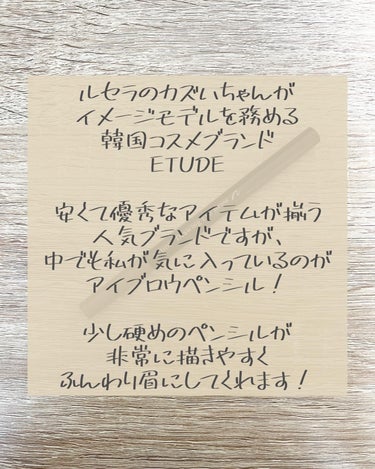 ルセラのカズハちゃんが
イメージモデルを務める
韓国コスメブランド
ETUDE
安くて優秀なアイテムが揃う
人気ブランドですが、
中でも私が気に入っているのが
アイブロウペンシル！
少し硬めのペンシルが
非常に描きやすく
ふんわり眉にしてくれます！